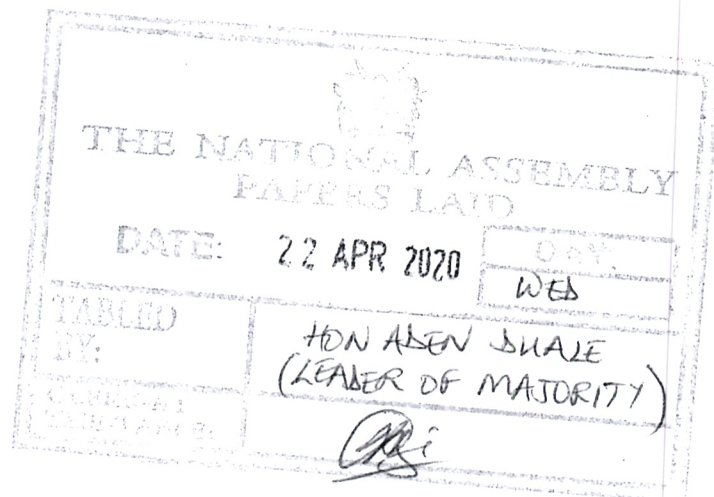 THE NATIONAL ASSEMBLY
PAPERS LAID
DATE: 22 APR 2020 DAY.
WED
TABLED
BY:
HON ADEN DUALE
(LEADER OF MAJORITY)